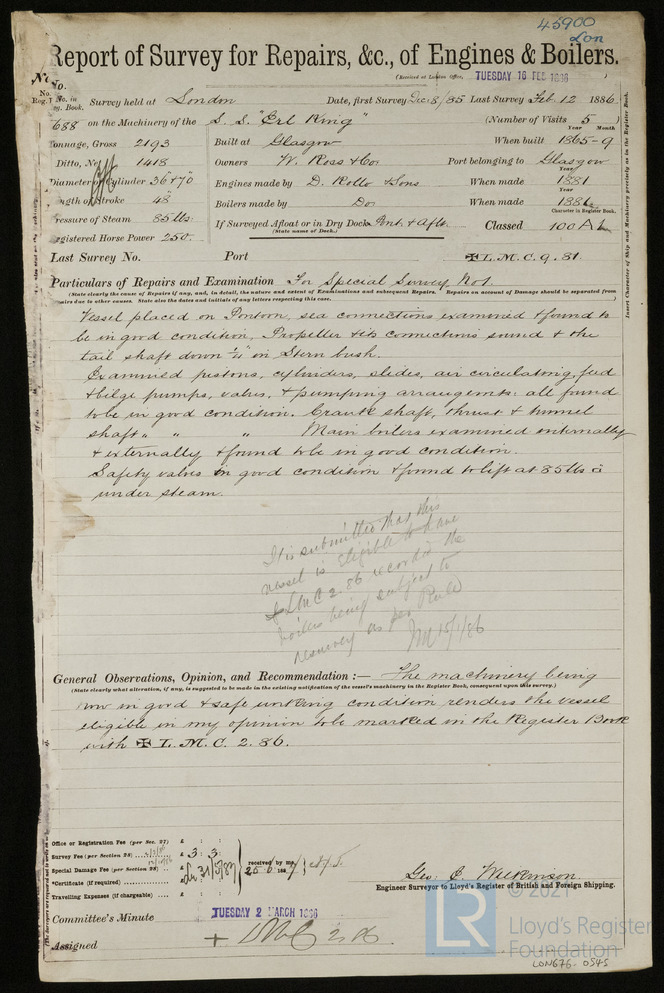 45900
Lon
Report of Survey for Repairs, &c., of Engines & Boilers.
(Received at London Office, TUESDAY 16 FEB 1886)
No.
No. in
Survey held at London Date, first Survey Dec 8/85 Last Survey Feb. 12 1886
688 on the Machinery of the S. S. "Erl King" (Number of Visits 5)
Tonnage, Gross 2193 Built at Glasgow When built 1865-9
Ditto, Net 1418 Owners W. Ross & Co. Port belonging to Glasgow
Diameter of Cylinder 36 & 70 Engines made by D. Rollo & Sons When made 1881
Length of Stroke 48 Boilers made by Do. When made 1881
Pressure of Steam 85 lbs If Surveyed Afloat or in Dry Dock Pont. & Aflt. Classed 100 A1
(State name of Dock.)
Character in Register Book.
Registered Horse Power 250.
Last Survey No. Port ✠ L.M.C. 9. 81
Particulars of Repairs and Examination For Special Survey No 1.
(State clearly the cause of Repairs if any, and, in detail, the nature and extent of Examinations and subsequent Repairs. Repairs on account of Damage should be separated from
Repairs due to other causes. State also the dates and initials of any letters respecting this case.
Vessel placed on Pontoon, sea connections examined & found to
be in good condition, Propeller & its connections sound & the
tail shaft down in Stern bush.
Examined pistons, cylinders, slides, air circulating, feed
& bilge pumps, valves, & pumping arrangements: all found
to be in good condition. Crank shaft, thrust & tunnel
shaft " " " Main boilers examined internally
& externally & found to be in good condition.
Safety valves in good condition & found to lift at 85 lbs
under steam.
It is submitted that this
vessel is eligible to have
✠ LMC 2.86 recorded the
boilers being subject to
resurvey as per Rule
General Observations, Opinion, and Recommendation :— The machinery being
(State clearly what alteration, if any, is suggested to be made in the existing notification of the vessel's machinery in the Register Book, consequent upon this survey.)
now in good & safe working condition renders the vessel
eligible in my opinion to be marked in the Register Book
with ✠ L.M.C. 2. 86.
Office or Registration Fee (per Sec. 27) £ : :
Survey Fee (per Section 28) £ 3 : 3
Special Damage Fee (per Section 28) £
received by me,
*Certificate (if required) £ : :
Travelling Expenses (if chargeable) £ : :
Geo. C. Wilkinson.
Engineer Surveyor to Lloyd's Register of British and Foreign Shipping.
Committee's Minute TUESDAY 2 MARCH 1886
Assigned + LMC 2.86
Insert Character of Ship and Machinery precisely as in the Register Book.
LR
© 2021
Lloyd's Register
Foundation
LON676-0545